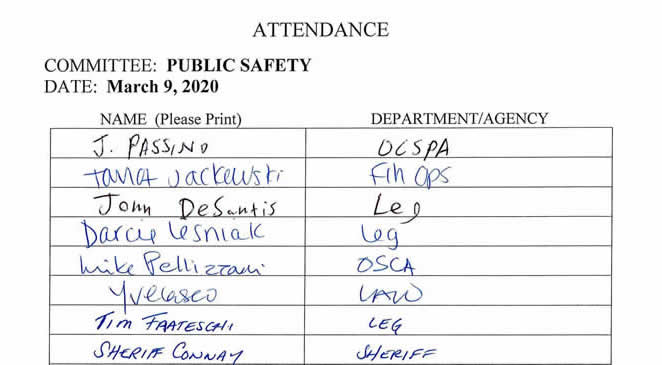 ATTENDANCE
COMMITTEE: PUBLIC SAFETY
DATE: March 9, 2020
NAME (Please Print) DEPARTMENT/AGENCY
J. PASSINO OCSPA
Jackowski Fin Ops
John DeSantis Leg
Darcie Lesniak Leg
Mike OSCA
Yvelasco LAW
TIM FRATESCHI LEG
SHERIFF CONWAY SHERIFF